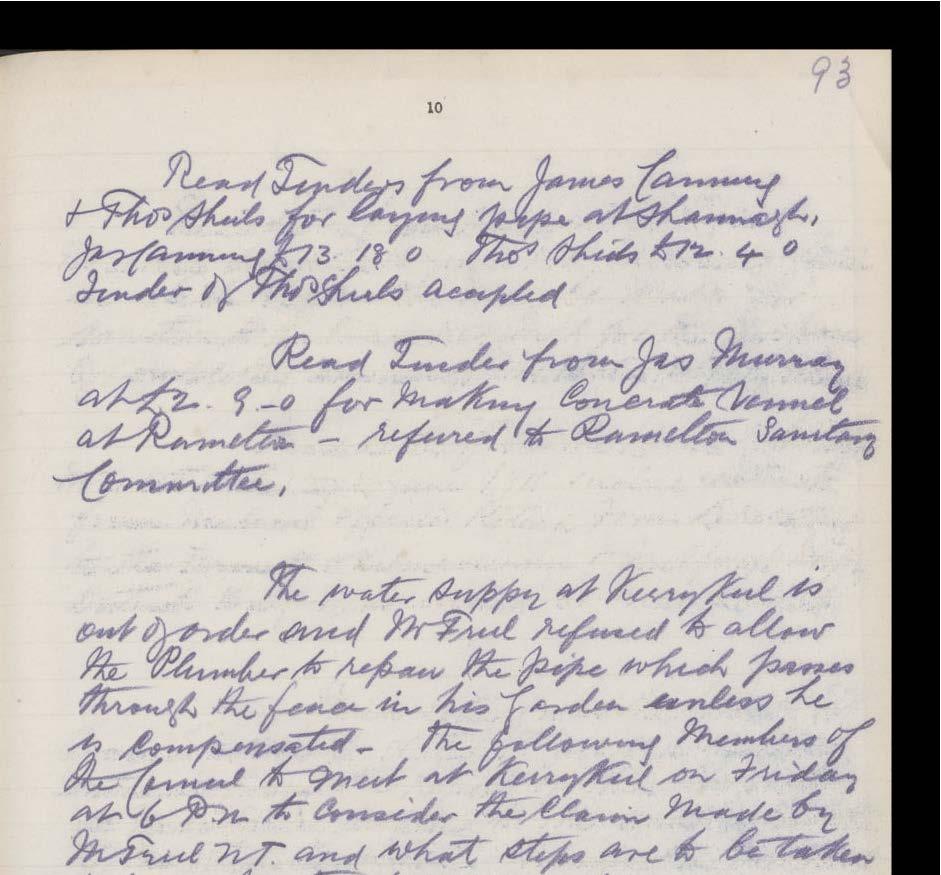 93
10
Read Tenders from James Canning
& Thos Sheils for laying pipe at Shannagh.
Jas Canning £13 18 0 Thos Sheils £12. 4 0
Tender of Thos Sheils accepted
Read Tender from Jas Murray
at £2. 9.-0 for making Concrete Vennel
at Ramelton - referred to Ramelton Sanitary
Committee.
The water supply at Kerrykeel is
out of order and Mr Friel refused to allow
the Plumber to repair the pipe which passes
through the fence in his Garden unless he
is compensated - The following Members of
the Council to meet at Kerrykeel on Friday
at 6 P.m to consider the Claim made by
Mr Friel N.T. and what steps are to be taken